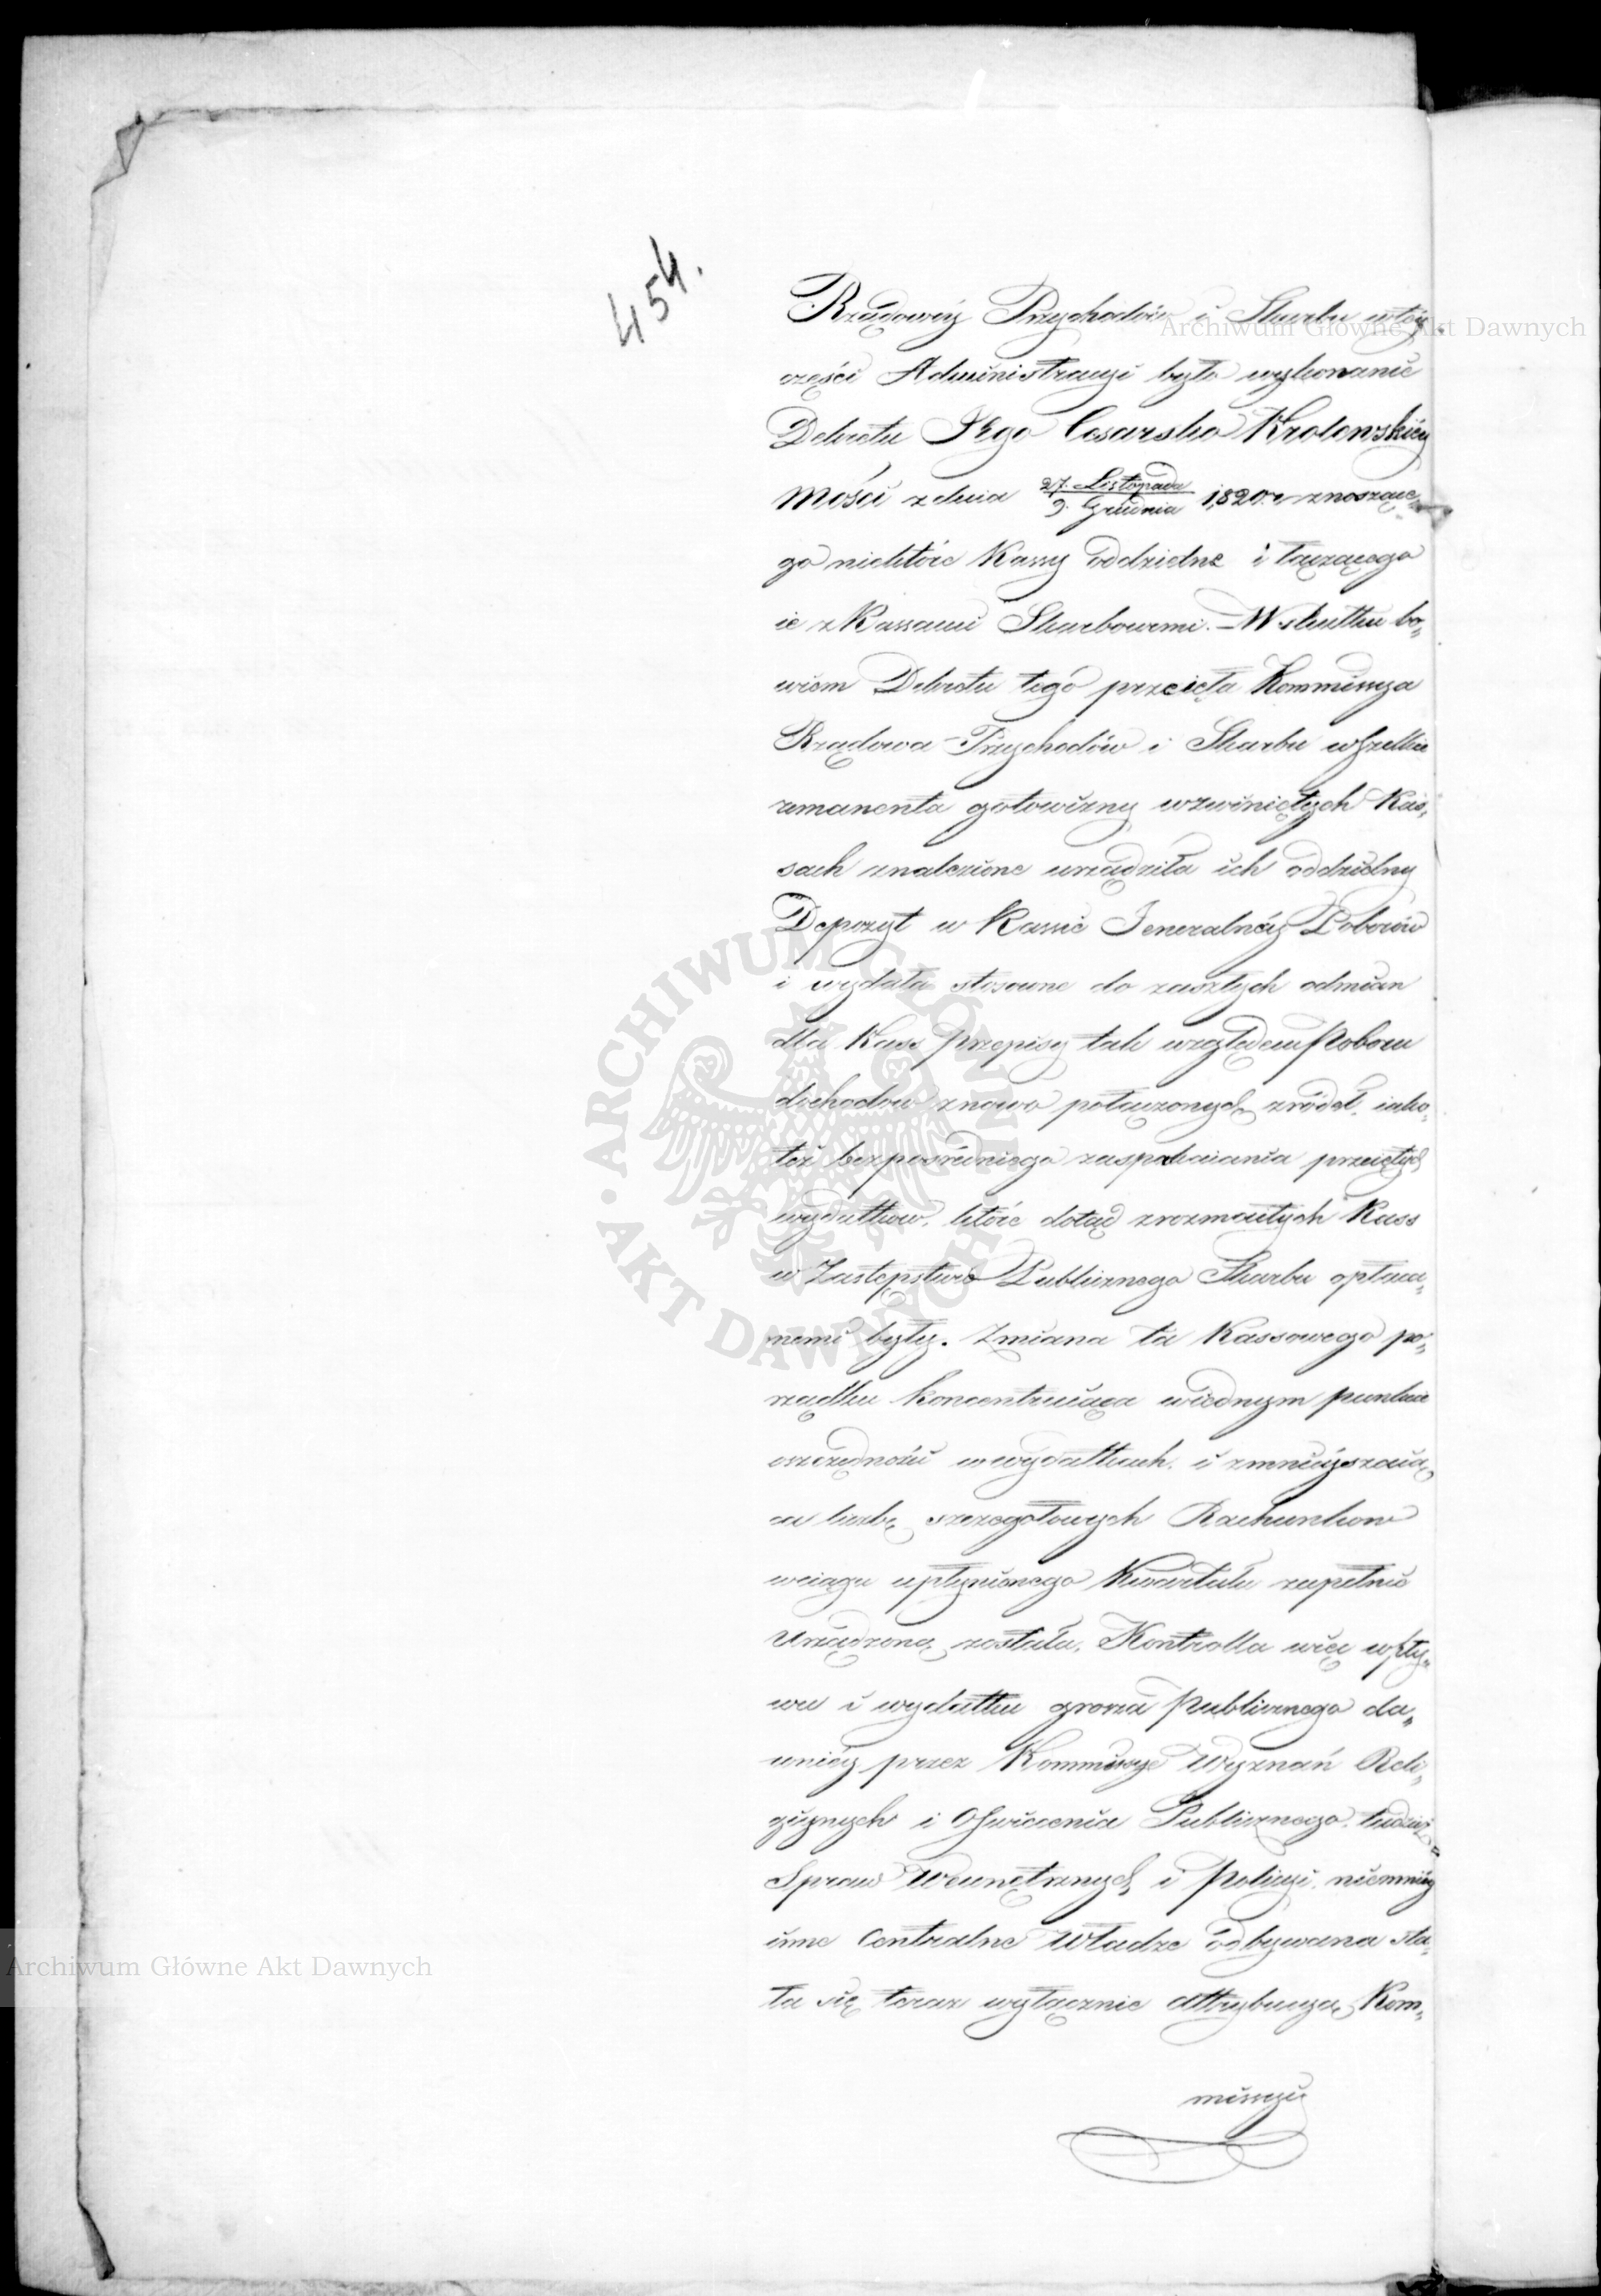 454.
Rządowéy Przychodów i Skarbu wtéy
części Administracyi było wykonanie
Dekretu JEgo Cesarsko Krolewskiéy
Mości z dnia 27. Listopada / 9. Grudnia 1820. r. znoszące„
go niektóre Kassy oddzielne i łączącego
ie z Kassami Skarbowemi. — W skutku bo„
wiem Dekretu tego przeięła Kommissya
Rządowa Przychodów i Skarbu wszelkie
remanenta gotowizny w zwiniętych Kas„
sach znalezione urządziła ich oddzielny
Depozyt w Kassie Jeneralnéy Poborów
i wydała stosowne do zaszłych odmian
dla Kass przepisy tak względem Poboru
dochodow znowo połączonych źródeł, iako„
też bezpośredniego zaspokaiania przeiętych
wydatkow, które dotąd z rozmaitych Kass
w Zastępstwie Publicznego Skarbu opłaca„
nemi były. Zmiana ta Kassowego po„
rządku koncentruiąca w iednym punkcie
oszczędności w wydatkach, i zmnieyszaią„
ca liczbę szczegółowych Rachunkow
w ciągu upłynionego Kwartału zupełnie
urządzoną została. Kontrolla więc wpły„
wu i wydatku grosza Publicznego da„
wniéy przez Kommissye Wyznań Reli„
giynych i Oświecenia Publicznego, tudzież
Spraw Wewnętrznych i Policyi, niemniéy
inne Centralne Władze odbywana sta„
ła się teraz wyłącznie attrybucyą Kom„
missyi
Archiwum Główne Akt Dawnych
ARCHIWUM GŁÓWNE · AKT DAWNYCH
Archiwum Główne Akt Dawnych